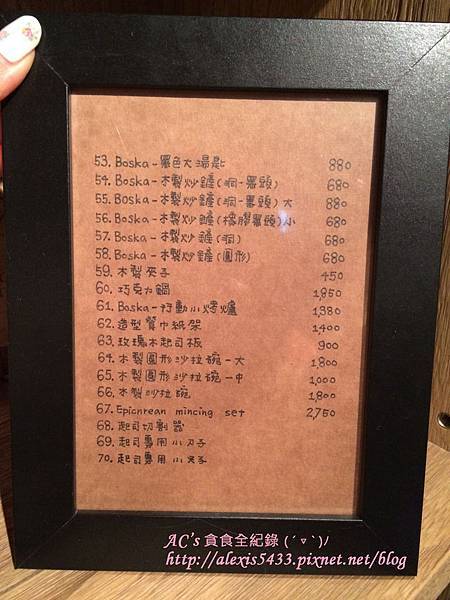 53. Boska-黑色大湯匙 880
54. Boska-木製炒鏟(洞-黑頭) 680
55. Boska-木製炒鏟(洞-黑頭)大 880
56. Boska-木製炒鏟(橡膠黑頭)小 680
57. Boska-木製炒鏟(洞) 680
58. Boska-木製炒鏟(圓形) 680
59. 木製夾子 450
60. 巧克力鍋 1,850
61. Boska-行動小烤爐 1,380
62. 造型餐巾紙架 1,400
63. 玫瑰木起司板 900
64. 木製圓形沙拉碗-大 1,800
65. 木製圓形沙拉碗-中 1,000
66. 木製沙拉碗 1,800
67. Epicnrean mincing set 2,750
68. 起司切割器
69. 起司專用小刀子
70. 起司專用小叉子
AC's 貪食全紀錄 (´▽`)ﾉ
http://alexis5433.pixnet.net/blog